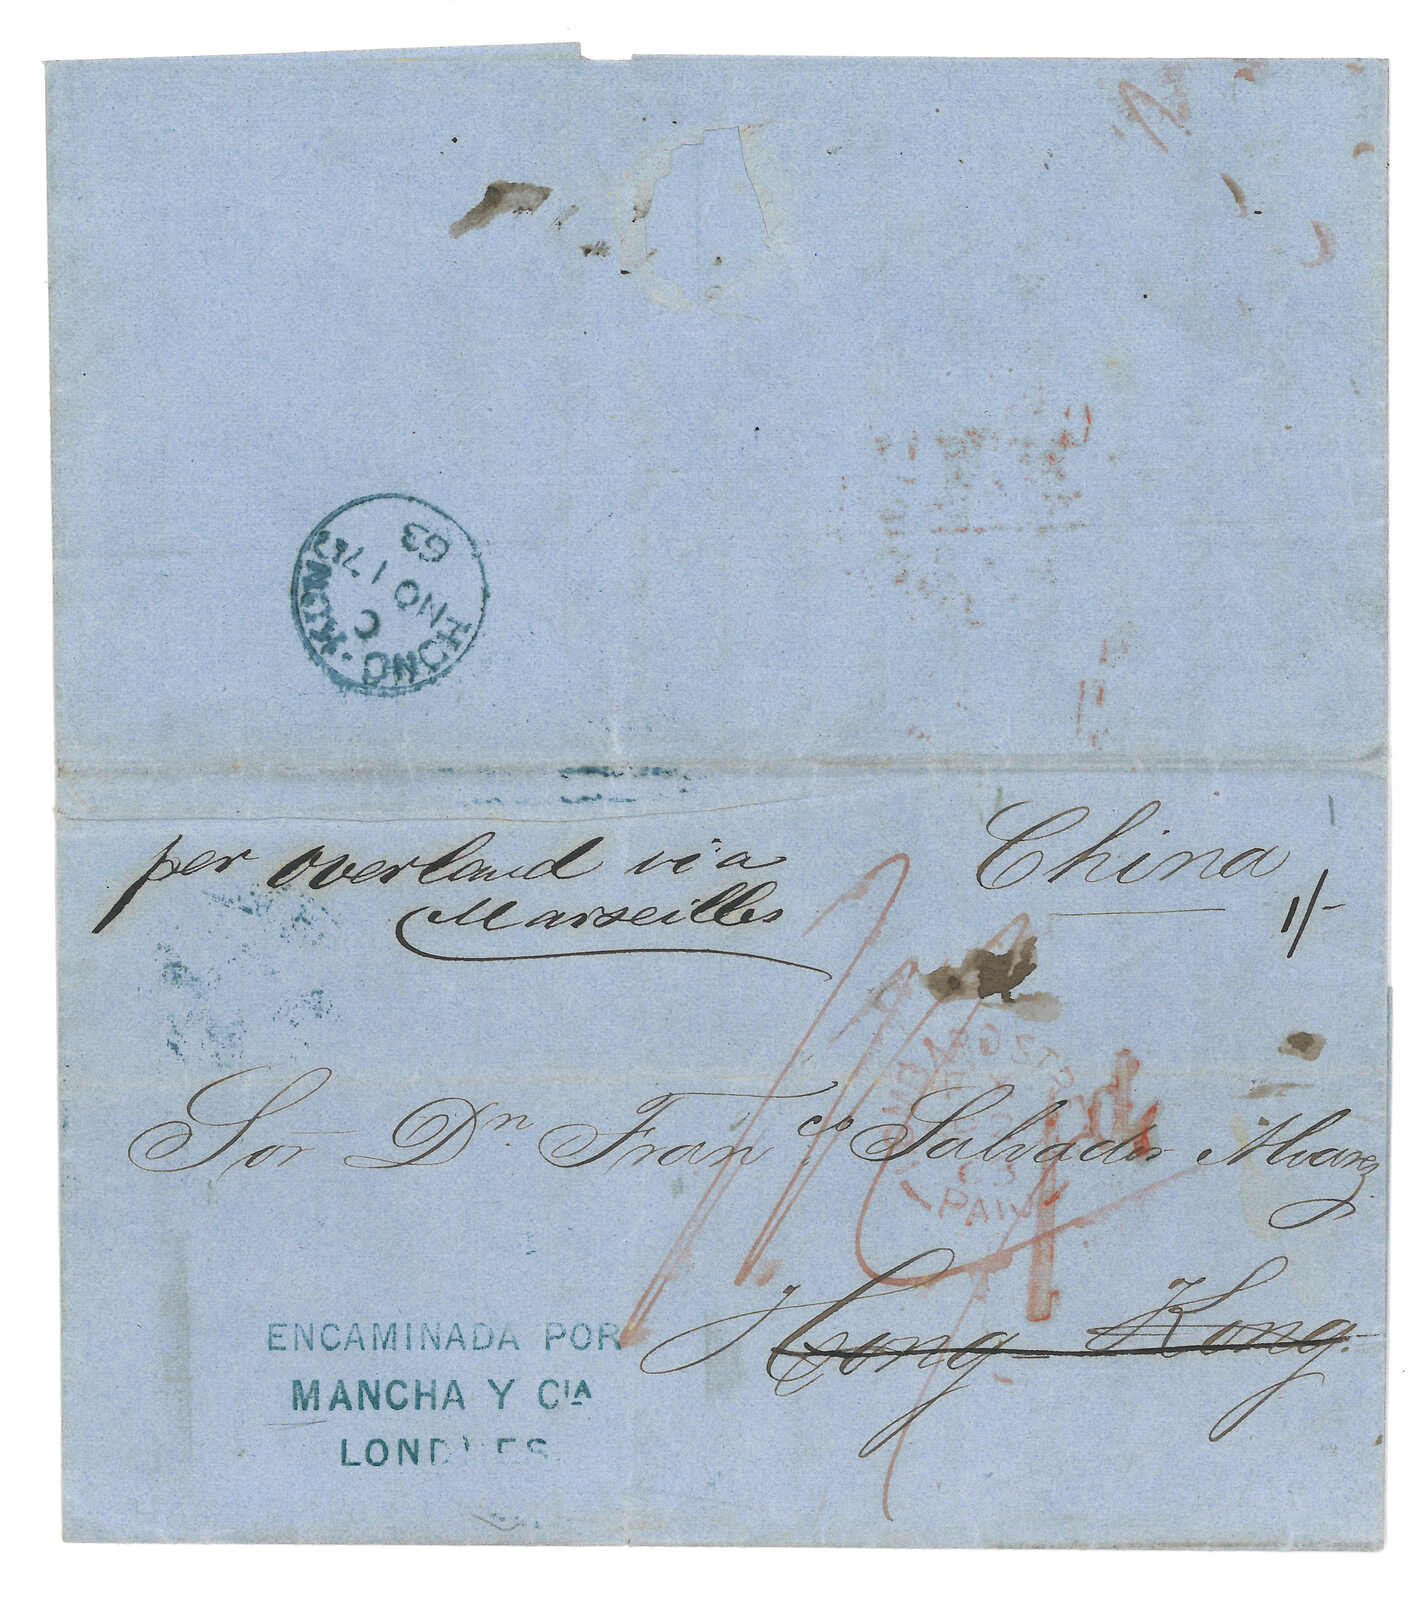 HONG-KONG
C
NO 17
63
per overland via
Marseilles
China
1/-
1d
PAID
Sor Dn Franco Salvador Alvarez
Hong Kong.
ENCAMINADA POR
MANCHA Y CIA
LONDRES